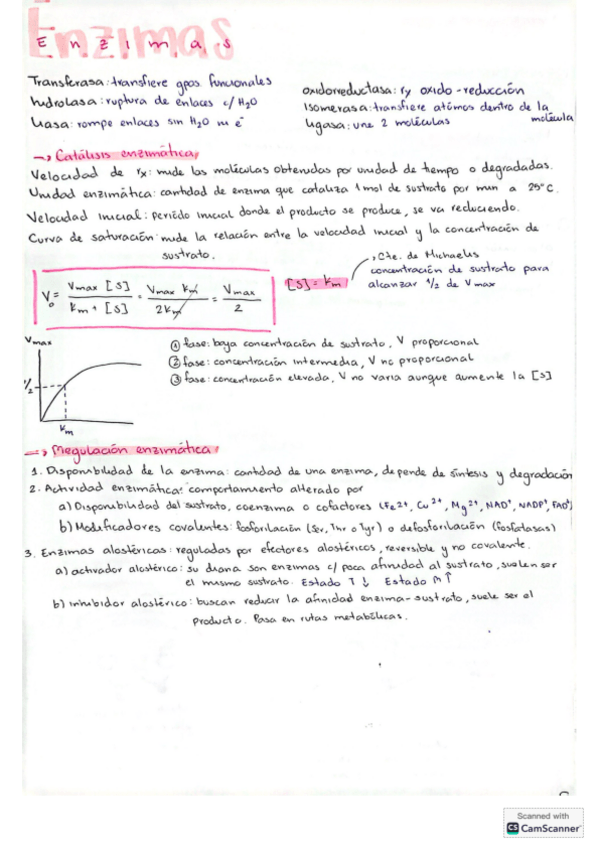 Enzimas
Enzimas
Transferasa: transfiere gpos. funcionales
hidrolasa: ruptura de enlaces c/ H2O
liasa: rompe enlaces sin H2O ni e-
oxidorreductasa: rx oxido-reducción
Isomerasa: transfiere atómos dentro de la
molécula
ligasa: une 2 moléculas
→ Catálisis enzimática:
Velocidad de rx: mide las moléculas obtenidas por unidad de tiempo o degradadas.
Unidad enzimática: cantidad de enzima que cataliza 1 mol de sustrato por min a 25°C.
Velocidad inicial: periódo inicial donde el producto se produce, se va reduciendo.
Curva de saturación: mide la relación entre la velocidad inicial y la concentración de
sustrato.
V0 = Vmax [S] / Km + [S] = Vmax Km / 2Km = Vmax / 2
[S] = Km
Cte. de Michaelis
concentración de sustrato para
alcanzar 1/2 de Vmax
Vmax
1/2
Km
① fase: baja concentración de sustrato, V proporcional
② fase: concentración intermedia, V no proporcional
③ fase: concentración elevada, V no varia aunque aumente la [S]
→ Regulación enzimática:
1. Disponibilidad de la enzima: cantidad de una enzima, depende de síntesis y degradación
2. Actividad enzimática: comportamiento alterado por
a) Disponibilidad del sustrato, coenzima o cofactores (Fe2+, Cu2+, Mg2+, NAD+, NADP+, FAD+)
b) Modificadores covalentes: fosforilación (Ser, Thr o Tyr) o defosforilación (fosfatasas)
3. Enzimas alostéricas: reguladas por efectores alostéricos, reversible y no covalente.
a) activador alostérico: su diana son enzimas c/ poca afinidad al sustrato, suelen ser
el mismo sustrato. Estado T ↓ Estado R ↑
b) inhibidor alostérico: buscan reducir la afinidad enzima-sustrato, suele ser el
producto. Pasa en rutas metabólicas.
Scanned with
CS CamScanner